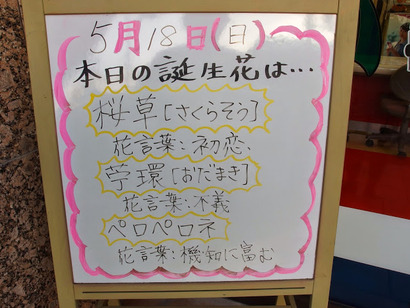 5月18日(日)
本日の誕生花は…
桜草[さくらそう]
花言葉:初恋
苧環[おだまき]
花言葉:不義
ペロペロネ
花言葉:機知に富む